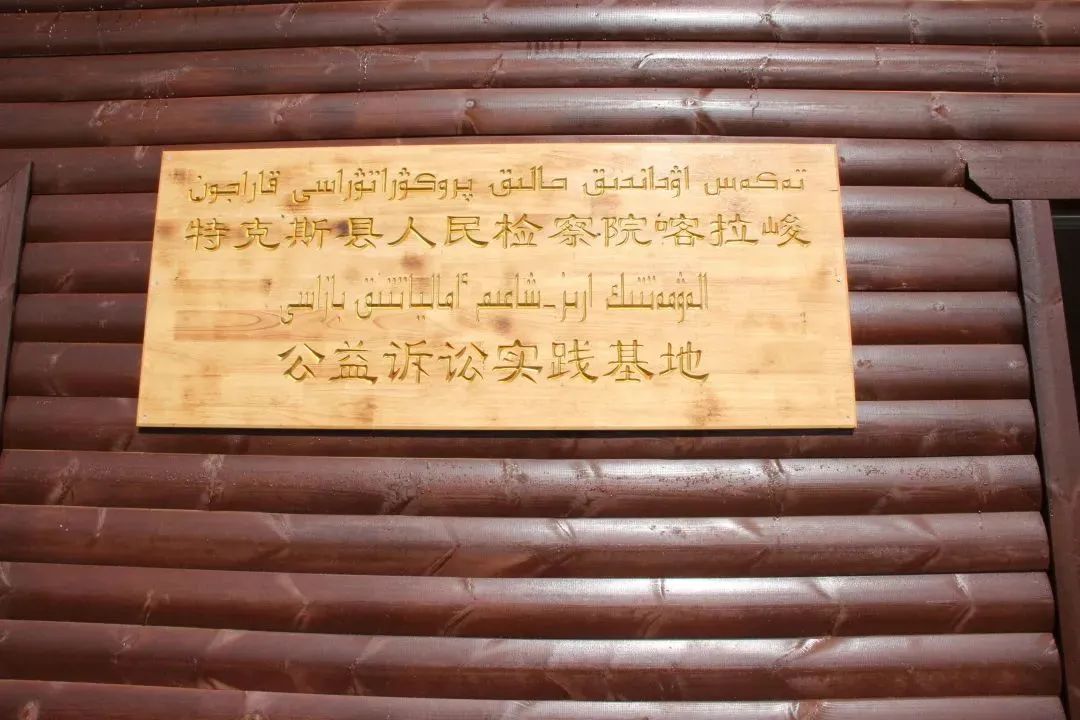 تەكەس اۋداندىق حالىق پروكۋراتۋراسى قاراجون
特克斯县人民检察院喀拉峻
الەۋمەتتىك ارىز-شاعىم ٴامالياتتىق بازاسى
公益诉讼实践基地